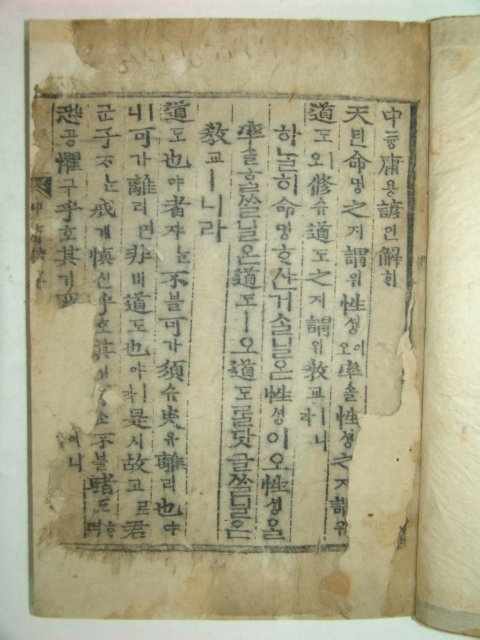 中듕庸용諺언解ᄒᆡ
天텬命명之지謂위性셩이오率솔性셩之지謂위
道도ㅣ오修슈道도之지謂위敎교ㅣ니라
하ᄂᆞᆯ히命명ᄒᆞ샨거슬닐온性셩이오性셩을
率솔ᄒᆞᆯᄊᆞᆯ닐온道도ㅣ오道도ᄅᆞᆯ닷글ᄊᆞᆯ닐온
敎교ㅣ니라
道도也야者쟈ᄂᆞᆫ不블可가須슈臾유離리也야
ㅣ니可가離리면非비道도也야ㅣ라是시故고로君
군子ᄌᆞᄂᆞᆫ戒계愼신乎호其기所소不블睹도ᄒᆞ며
恐공懼구乎호其기